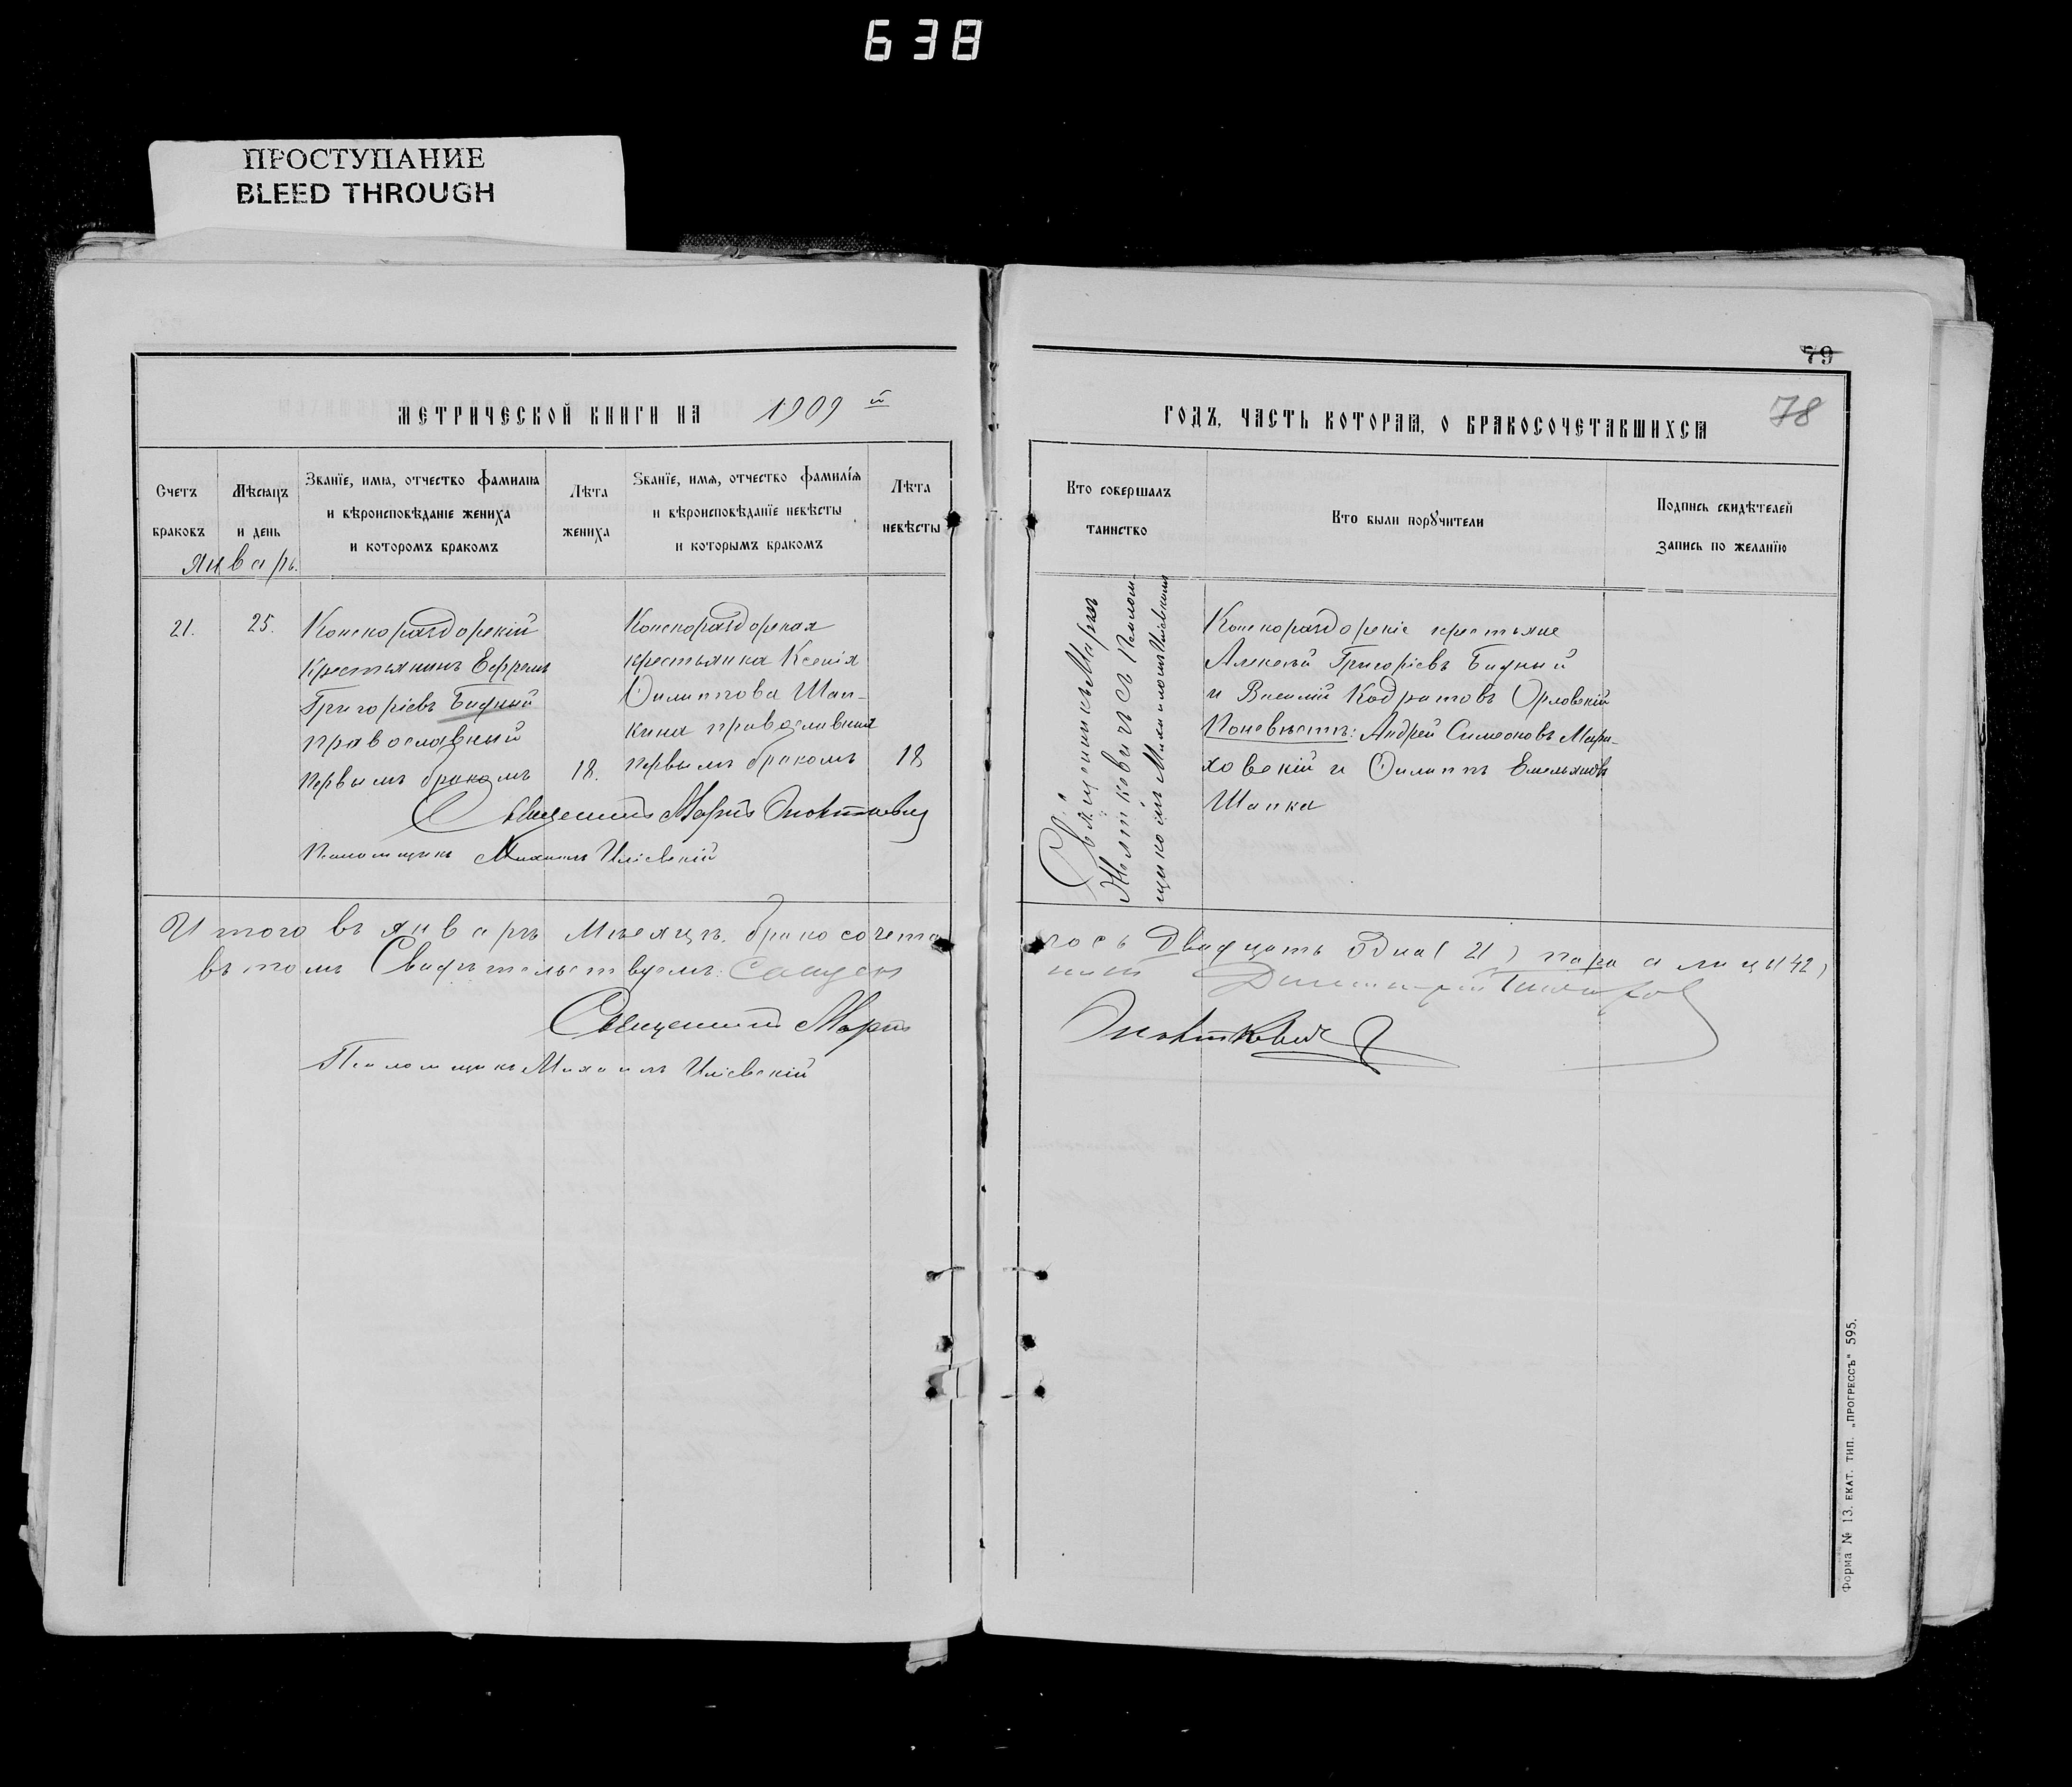 638
ПРОСТУПАНИЕ
BLEED THROUGH
79
78
МЕТРИЧЕСКОЙ КНИГИ НА 1909 й
ГОДЪ, ЧАСТЬ ВТОРАЯ, О БРАКОСОЧЕТАВШИХСЯ
Счетъ
браковъ
Мѣсяцъ
и день
Званїе, имя, отчество фамилия
и вѣроисповѣданїе жениха
и которомъ бракомъ
Лѣта
жениха
Званїе, имя, отчество фамилїя
и вѣроисповѣданїе невѣсты
и которымъ бракомъ
Лѣта
невѣсты
Кто совершалъ
таинство
Кто были поручители
Подпись свидѣтелей
запись по желанїю
Январь.
21.
25.
Конскораздорскій
Крестьянинъ Ефремъ
Григоріевъ Бидный
православный
первымъ бракомъ
18.
Конскораздорская
крестьянка Ксенія
Филиппова Шап-
кина православная
первымъ бракомъ
18
Священникъ Маркъ
Жолткевичъ съ Псалом-
щикомъ Михаиломъ
Конскораздорскіе крестьяне
Алексѣй Григоріевъ Бидный
и Василій Кодратовъ Орловскій
По невѣстѣ: Андрей Симеоновъ Мари-
ховскій и Филиппъ Емельяновъ
Шапка
Священникъ Маркъ Жолткевичъ
Псаломщикъ Михаилъ
Итого въ январѣ мѣсяцѣ бракосочета-
лось Двадцать одна (21) пара а лицъ (42)
въ томъ Свидѣтельствуемъ:
Священникъ Маркъ
Жолткевичъ
Псаломщикъ Михаилъ
Форма № 13. ЕКАТ. ТИП. „ПРОГРЕССЪ" 595.